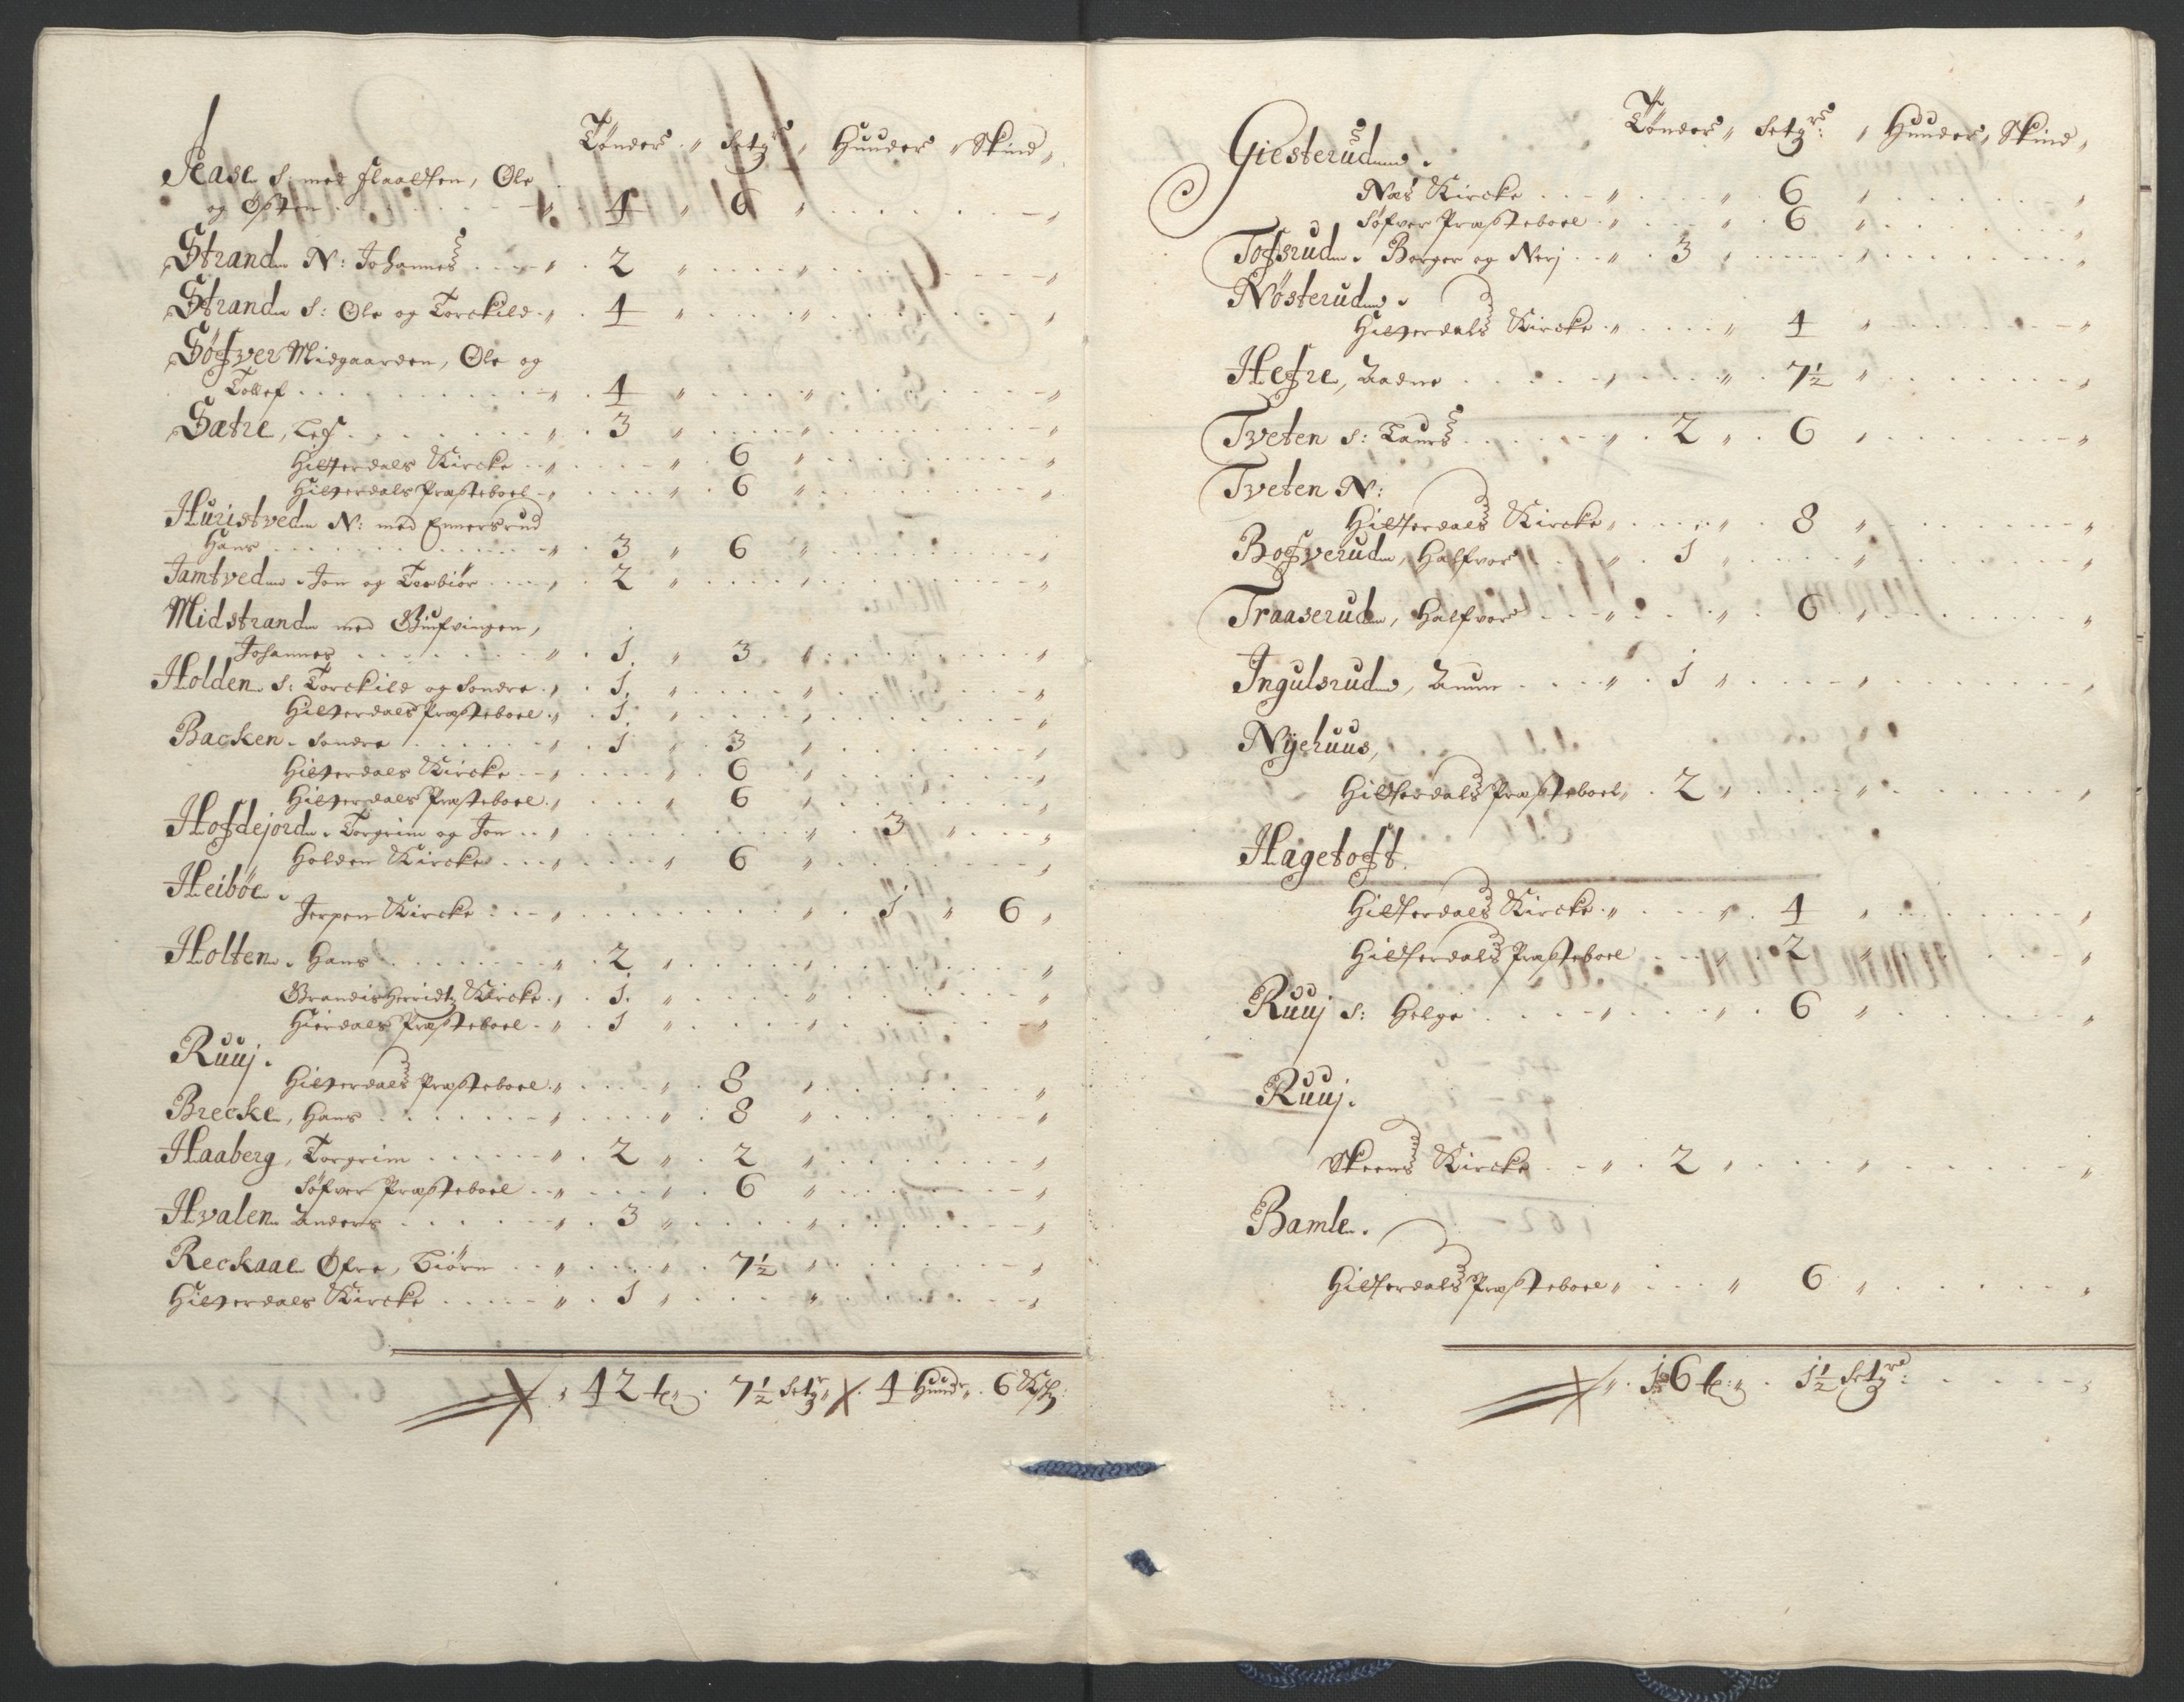 Tønder " Setgrs " Huuder " Skind "
S: med Flaadten, Ole
og Østen " 4 " 6 " "
Strand N: Johannes " 2 " " "
Strand S: Ole og Torckild " 4 " " "
Søfver Midgaarden, Ole og
Tollef " 4 " " "
Sætre, Leif " 3 " " "
Hitterdals Kircke " " 6 " "
Hitterdals Præsteboel " " 6 " "
Huristved N: med Ennersrud
Hans " 3 " 6 " "
Jamtved Jon og Torbiør " 2 " " "
Midstrand med
Johannes " 1 " 3 " "
Holden S: Torckild og Sondre " 1 " " "
Hitterdals Præsteboel " 1 " " "
Backen Sondre " 1 " 3 " "
Hitterdals Kircke " " 6 " "
Hitterdals Præsteboel " " 6 " "
Hofdejord Torgrim og Jon " " 3 " "
Holden Kircke " " 6 " "
Heibøe
Jerpen Kircke " " 1 " 6 "
Holten Hans " 2 " " "
Brandisherridtz Kircke " 1 " " "
Hierdals Præsteboel " 1 " " "
Ruuj.
Hitterdals Præsteboel " " 8 " "
Brecke, Hans " " 8 " "
Haaberg, Torgrim " 2 " 2 " "
Søfver Præsteboel " " 6 " "
Hvalen Anders " 3 " " "
Reckaae Øfre, Biørn " " 7½ " "
Hitterdals Kircke " 1 " " "
" 42 te 7½ Setgr " 4 Huudr " 6 Sk:
Tønder " Setgrs: " Huuder " Skind "
Giesterud
Næs Kircke " " 6 " "
Søfver Præsteboel " " 6 " "
Tofsrud Borger og Nerj " 3 " " "
Nøsterud
Hitterdals Kircke " " 4 " "
Hefre, Aadne " " 7½ " "
Tveten S: Laurs " 2 " 6 " "
Tveten N:
Hitterdals Kircke " " 8 " "
Bofverud, Halfvor " 1 " " "
Traaserud, Halfvor " " 6 " "
Ingulsrud, Anun " 1 " " "
Nyehuus,
Hitterdals Præsteboel " 2 " " "
Hagetoft.
Hitterdals Kircke " " 4 " "
Hitterdals Præsteboel " 2 " "
Ruuj S: Helge " " 6 " "
Ruuj.
Skeens Kircke " 2 " " "
Bamle.
Hitterdals Præsteboel " " 6 " "
" 16 te: 1½ Setgrs: "